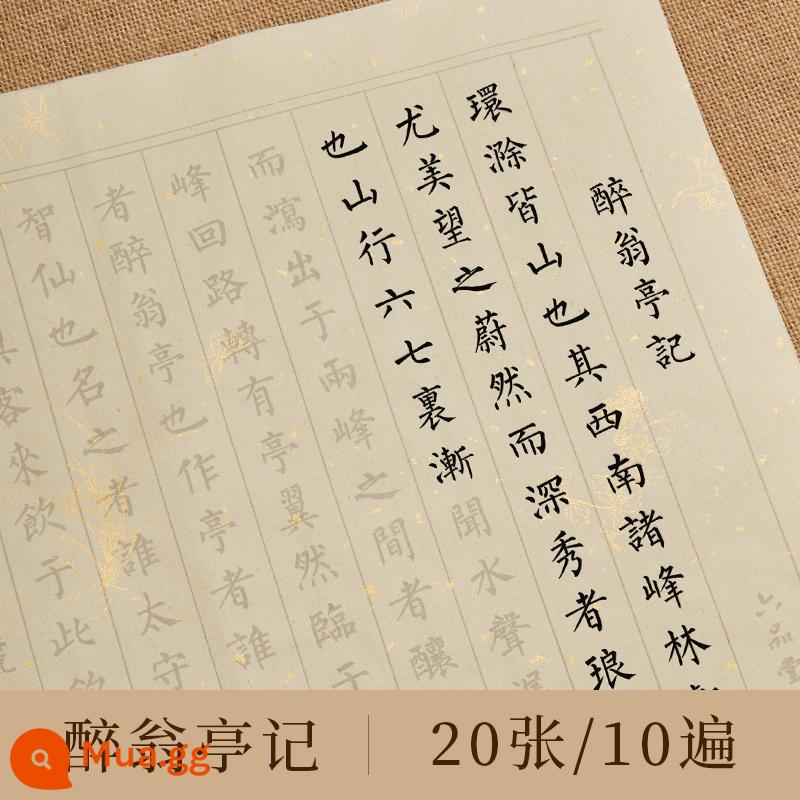 醉翁亭記
環滁皆山也其西南諸峰林
尤美望之蔚然而深秀者琅
也山行六七裏漸聞水聲
而瀉出于兩峰之間者釀
峰回路轉有亭翼然臨于
者醉翁亭也作亭者誰
智仙也名之者誰太守
客來飲于此飲
六品堂
醉翁亭记 20张/10遍
Mua.gg